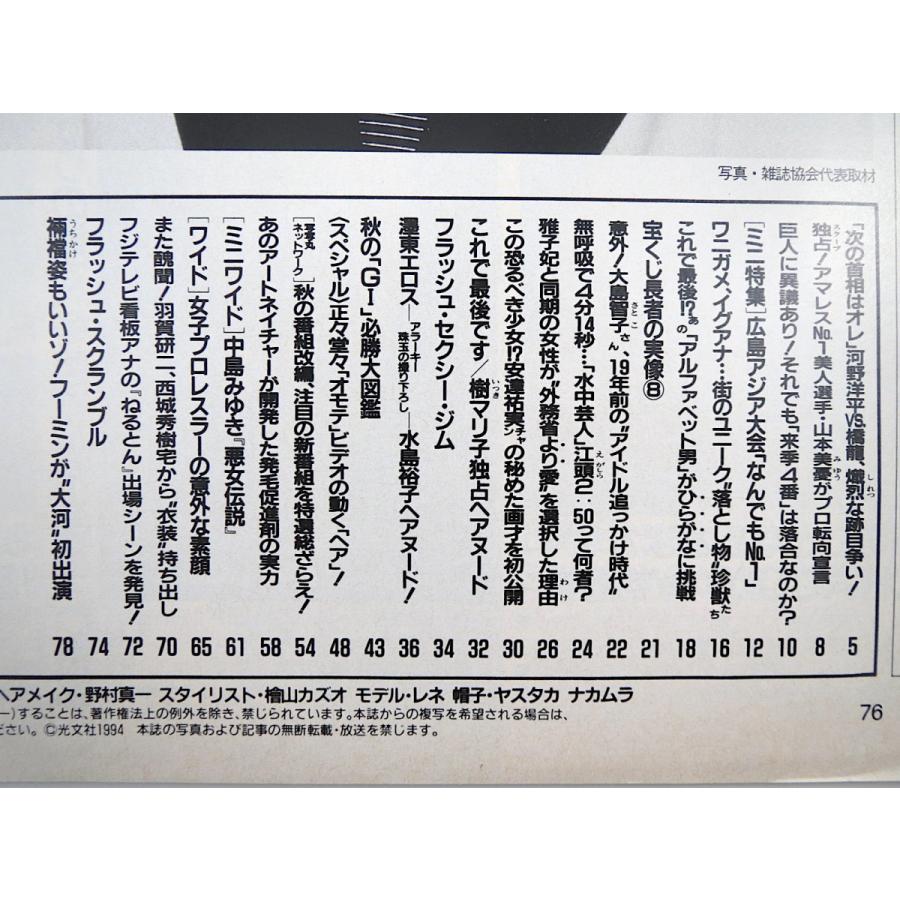 写真・雑誌協会代表取材
「次の首相はオレ」河野洋平VS.橋龍、熾烈な跡目争い! 5
独占!アマレスNo.1美人選手・山本美憂がプロ転向宣言 8
巨人に異議あり!それでも「来季4番」は落合なのか? 10
[ミニ特集]広島アジア大会「なんでもNo.1」 12
ワニガメ、イグアナ…街のユニーク“落とし物”珍獣たち 16
これで最後!?あの「アルファベット男」がひらがなに挑戦 18
宝くじ長者の実像⑧ 21
意外!大島智子さん、19年前の“アイドル追っかけ時代” 22
無呼吸で4分14秒…「水中芸人」江頭2:50って何者? 24
雅子妃と同期の女性が“外務省より愛”を選択した理由 26
この恐るべき少女!?安達祐実チャンの秘めた画才を初公開 30
これで最後です/樹マリ子独占ヘアヌード 32
フラッシュ・セクシー・ジム 34
濹東エロス―アラーキー珠玉の撮り下ろし―水島裕子ヘアヌード! 36
秋の「GI」必勝大図鑑 43
〈スペシャル〉正々堂々、「オモテ」ビデオの動く「ヘア」! 48
[電波丸ネットワーク]秋の番組改編、注目の新番組を特選総ざらえ! 54
あのアートネイチャーが開発した発毛促進剤の実力 58
[ミニワイド]中島みゆき『悪女伝説』 61
[ワイド]女子プロレスラーの意外な素顔 65
また醜聞!羽賀研二、西城秀樹宅から“衣装”持ち出し 70
フジテレビ看板アナの『ねるとん』出場シーンを発見! 72
フラッシュ・スクランブル 74
裲襠姿もいいゾ!フーミンが“大河”初出演 78
ヘアメイク・野村真一 スタイリスト・檜山カズオ モデル・レネ 帽子・ヤスタカ ナカムラ
ー)することは、著作権法上の例外を除き、禁じられています。本誌からの複写を希望される場合は、
ださい。©光文社1994 本誌の写真および記事の無断転載・放送を禁じます。
76